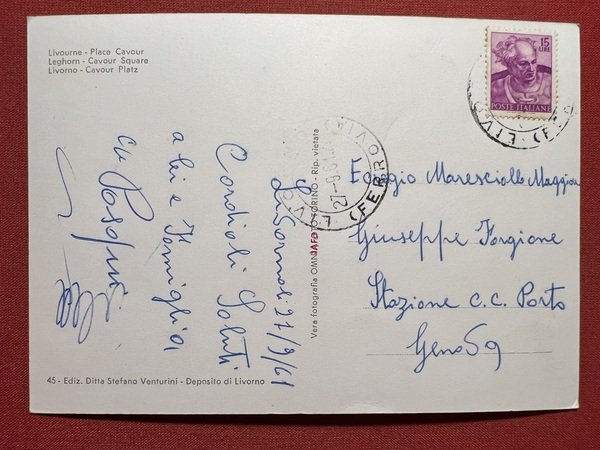 Livourne - Place Cavour
Leghorn - Cavour Square
Livorno - Cavour Platz
15
LIRE
POSTE ITALIANE
LIVO
(FERROVIA)
27-9-61
Livorno lì 27/9/61
Cordiali Saluti
a lei e Famiglia
Vera fotografia OMNIAFOTO TORINO - Rip. vietata
Maresciallo Maggiore
Giuseppe Forgione
Stazione C.C. Porto
Genova
45 - Ediz. Ditta Stefano Venturini - Deposito di Livorno